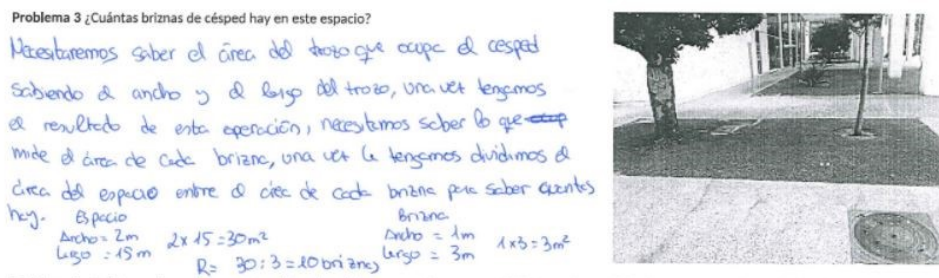 Problema 3 ¿Cuántas briznas de césped hay en este espacio?
Necesitaremos saber el área del trozo que ocupa el cesped
sabiendo el ancho y el largo del trozo, una vez tengamos
el resultado de esta operación, necesitamos saber lo que
mide el área de cada brizna, una vez la tengamos dividimos el
área del espacio entre el área de cada brizna para saber cuantas
hay.
Espacio
Ancho = 2m
Largo = 15m
2x15=30m²
Brizna
Ancho = 1m
Largo = 3m
1x3=3m²
R= 30:3=10 briznas